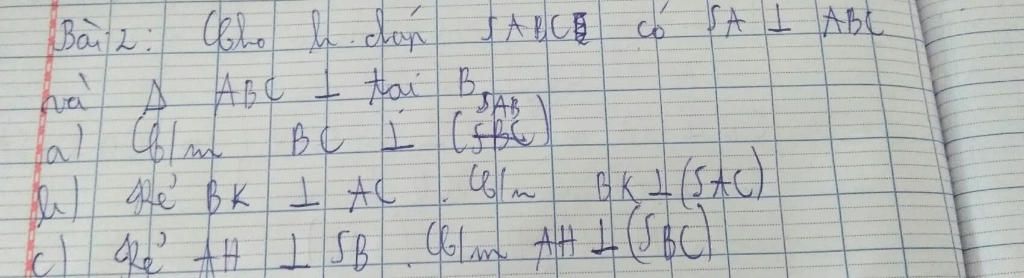 Bài 2: Cho h.chóp SABC có SA ⊥ ABC
và Δ ABC ⊥ tại B
a) C/m BC ⊥ (SAB)
b) Kẻ BK ⊥ AC. C/m BK ⊥ (SAC)
c) Kẻ AH ⊥ SB. C/m AH ⊥ (SBC)